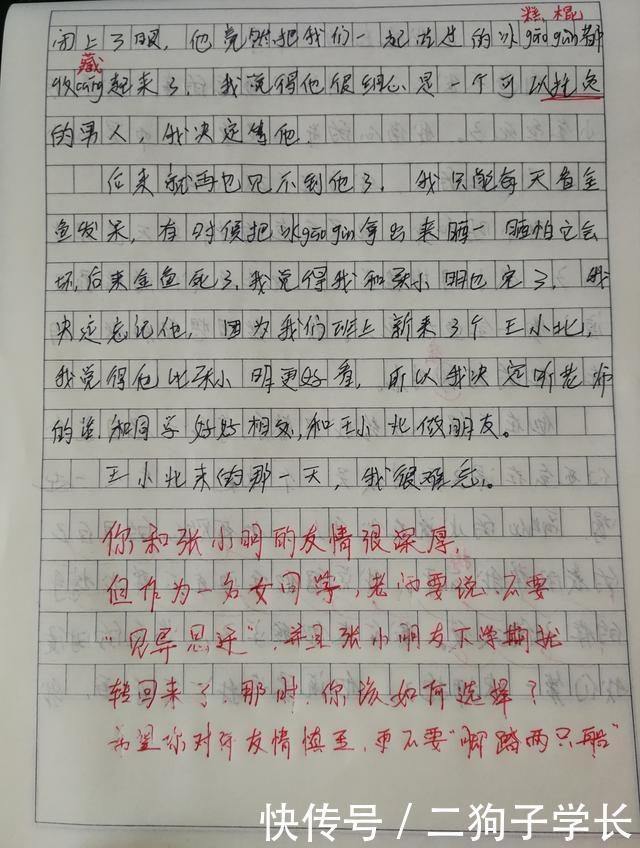 糕 棍
闭上了眼，他竟然把我们一起吃过的冰gāo gùn都
藏
收cáng起来了，我觉得他很细心是一个可以托负
的男人，我决定等他．
后来就再也见不到他了，我只能每天看金
鱼发呆，有时候把冰gāo gùn拿出来晒一晒怕它会
坏，后来金鱼死了，我觉得我和张小明也完了，我
决定忘记他，因为我们班上新来了个王小北，
我觉得他比张小明更好看，所以我决定听老师
的话和同学好好相处，和王小北做朋友。
王小北来的那一天，我很难忘。
你和张小明的友情很深厚，
但作为一名女同学，老师要说，不要
“见异思迁”，并且张小明友下学期就
转回来了，那时，你该如何选择？
希望你对待友情慎重，更不要“脚踏两只船”
快传号／二狗子学长